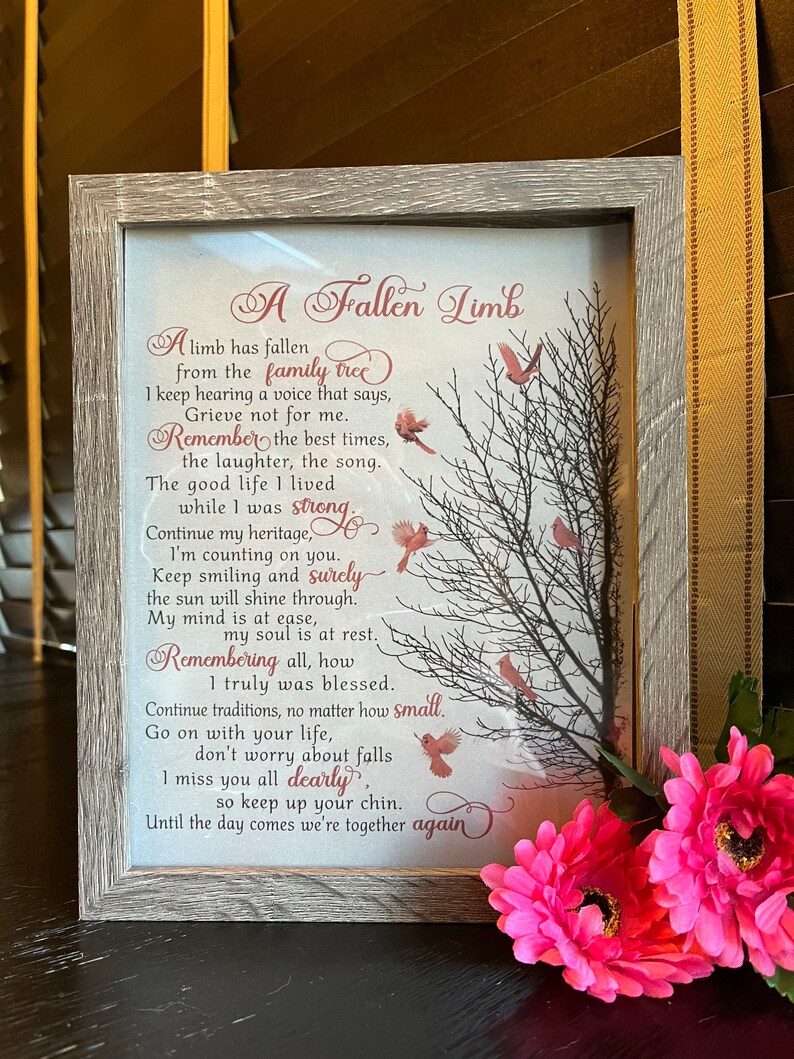 A Fallen Limb
A limb has fallen
from the family tree
I keep hearing a voice that says,
Grieve not for me.
Remember the best times,
the laughter, the song.
The good life I lived
while I was strong.
Continue my heritage,
I'm counting on you.
Keep smiling and surely
the sun will shine through.
My mind is at ease,
my soul is at rest.
Remembering all, how
I truly was blessed.
Continue traditions, no matter how small.
Go on with your life,
don't worry about falls
I miss you all dearly,
so keep up your chin.
Until the day comes we're together again